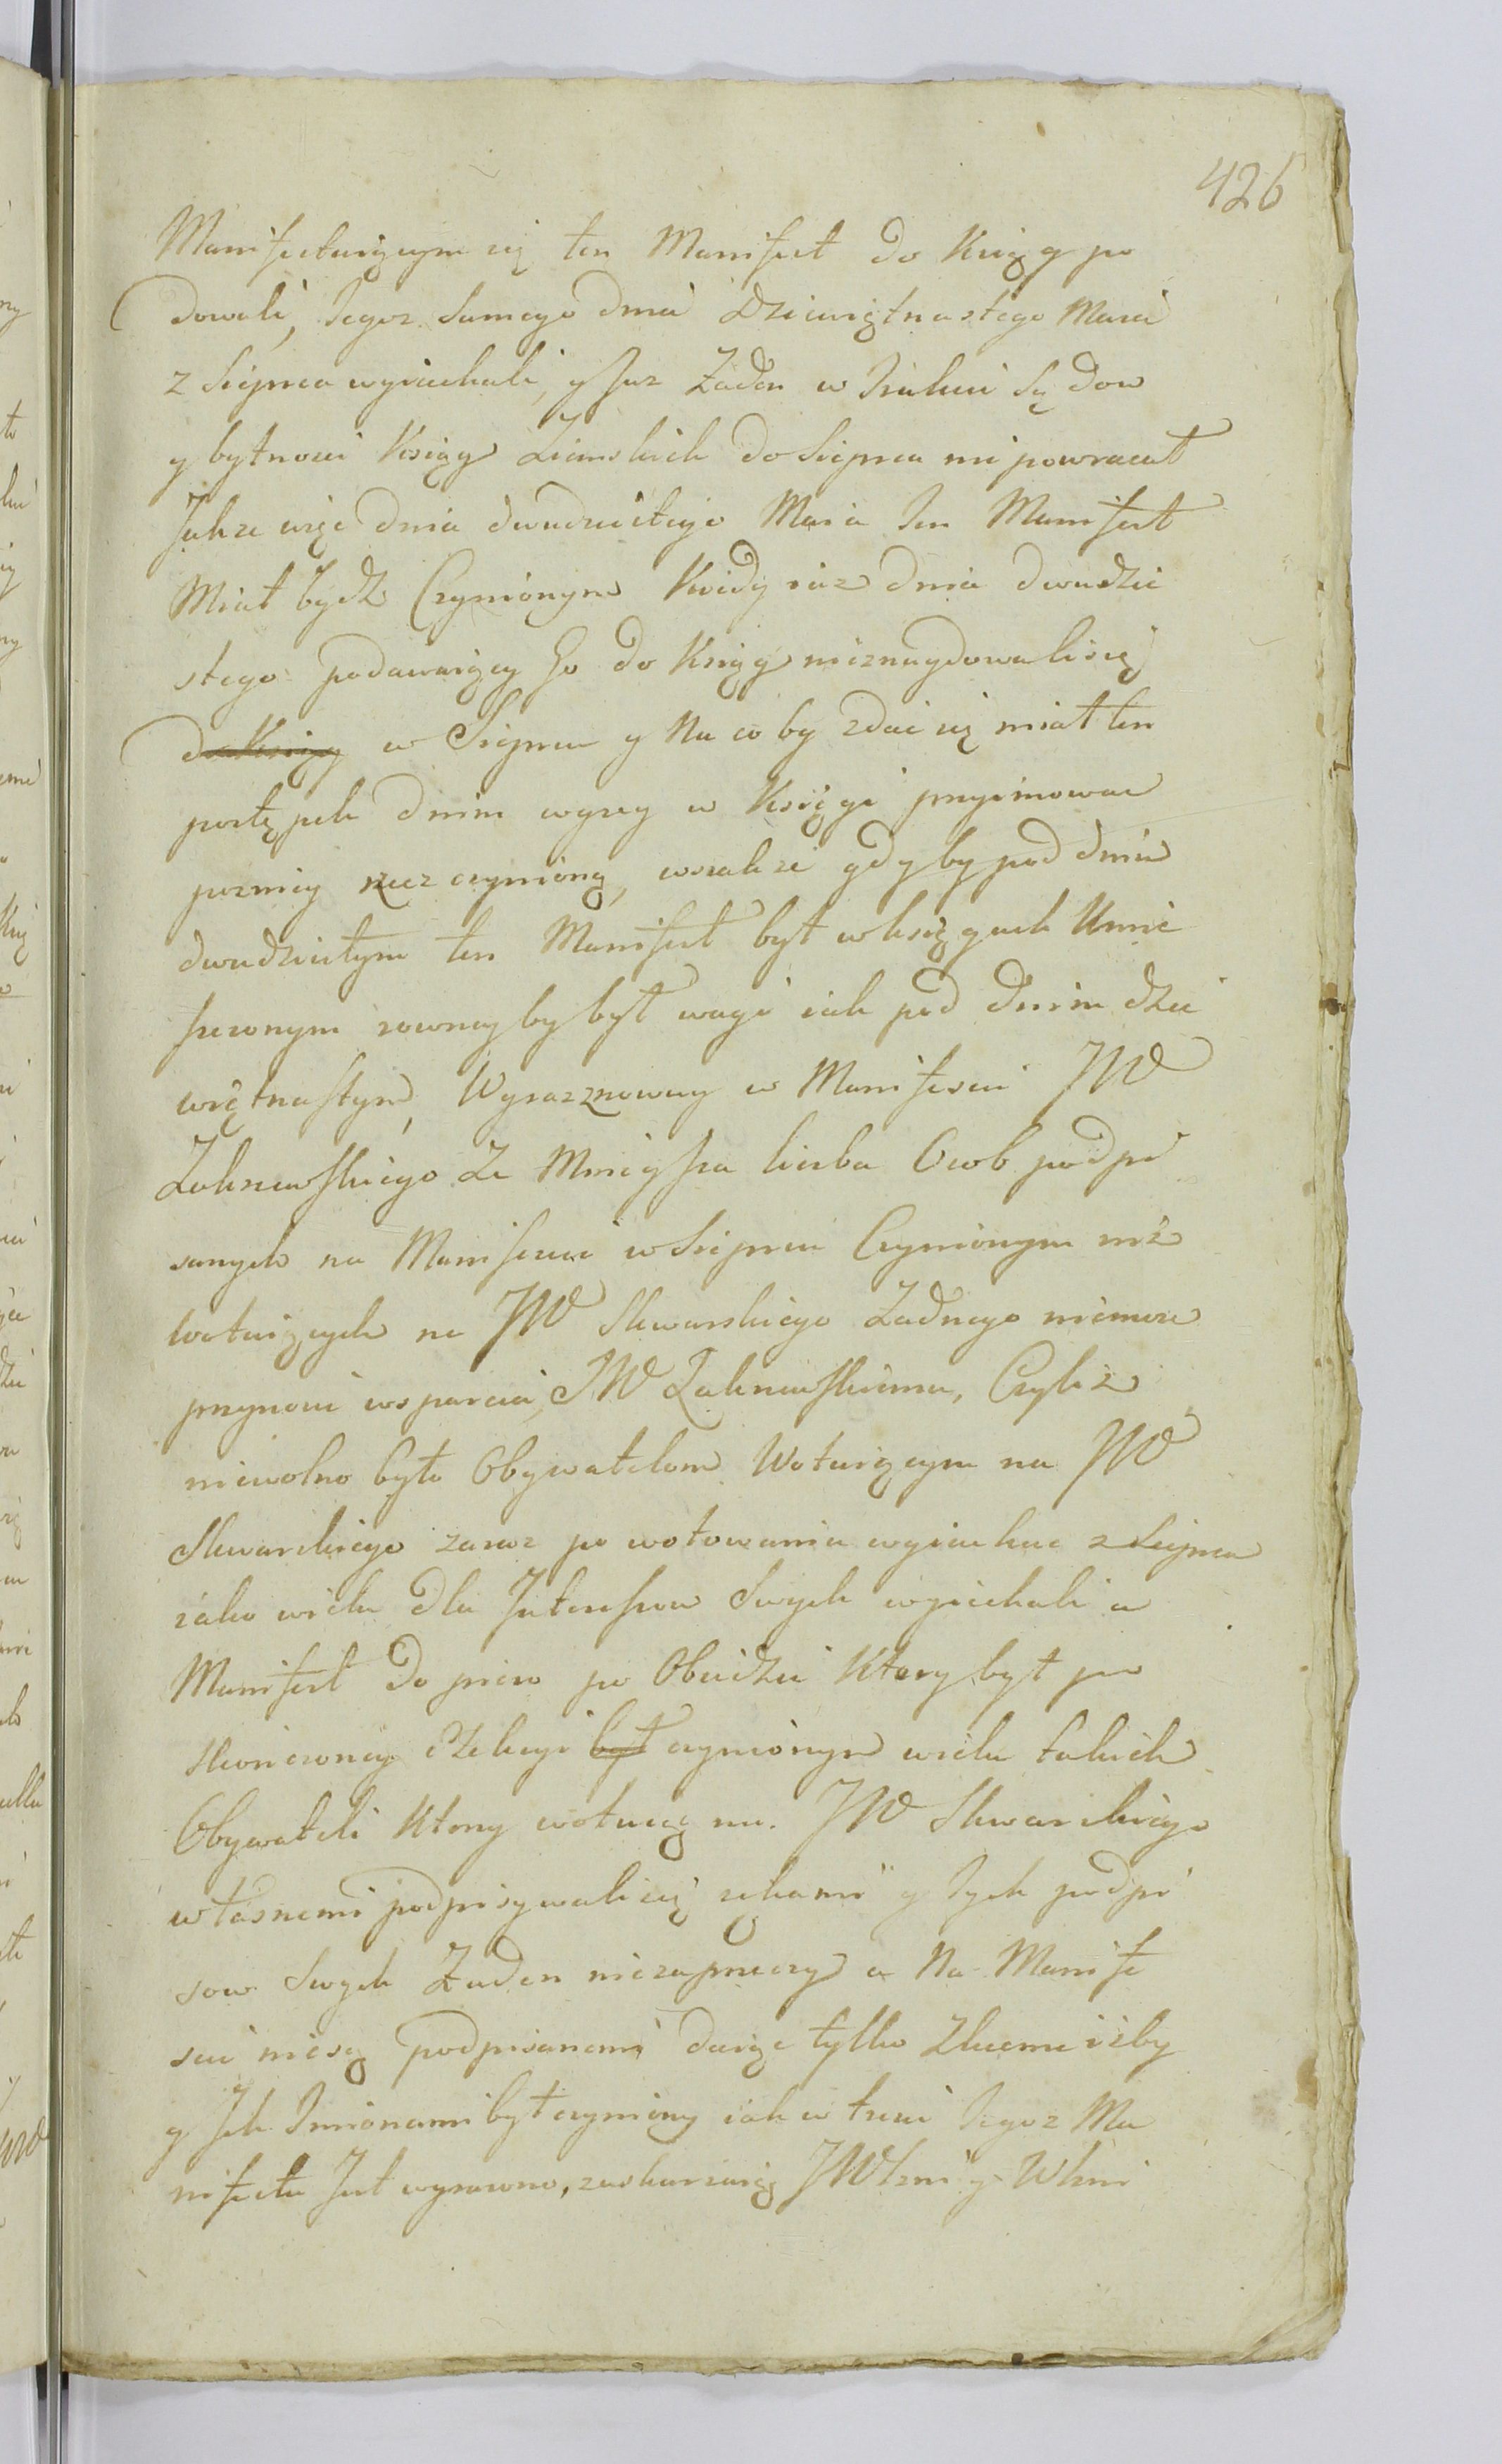 426
Manifestuiącym się ten Manifest do Ksiąg po
dowali, Tegoz Samego dnia Dziewiętnastego Maia
z Sieprca wyiechali, y Juz Zaden w Trakcie Są dow
y bytnosci Ksiąg Ziemskich do Sieprca nie powracał
Jakze więc dnia dwudziestego Maia ten Manifest
Miał bydz Czynionym Kiedy iuz dnia dwudzie
stego podawaiący Go do Ksiąg nieznaydowali się
do Ksiąg w Sieprcu y Na co by zdac się miał ten
postępek dniem wyzey w Księgi przyimowac
pozniey rzecz czynioną, wszakze gdyby pod dniem
dwudziestym ten Manifest był w księgach Umie
szczonym rowney by był wagi iak pod dniem dzie
więtnastym, Wyraz nowy w Manifescie JW
Zakrzewskiego Ze Mnieysza liczba Osob podpi
sanych na Manifescie w Sieprcu Czynionym niz
wotuiących na JW Skwarskiego Zadnego niemoze
przynosic wsparcia, JW Zakrzewskiemu, Czyliz
niewolno było Obywatelom Wotuiącym na JW
Skwarskiego zaraz po wotowaniu wyiechac z Sieprca
iako wielu dla Interessow Swych wyiechali a
Manifest do piero po Obiedzie Ktory był po
skonczoney Elekcyi był czynionym wielu takich
Obywateli Ktorzy wotuią na JW Skwarskiego
własnemi podpisywali się rękami y Tych podpi
sow Swych Zaden niezaprzeczy a Na Manife
scie niesą podpisanemi daiąc tylko Zlecenie izby
y Jch Jmionami był czyniony iak w tresci Tegoz Ma
nifestu Jest wyrazono, zaskarzaią JWZmi y WZmi